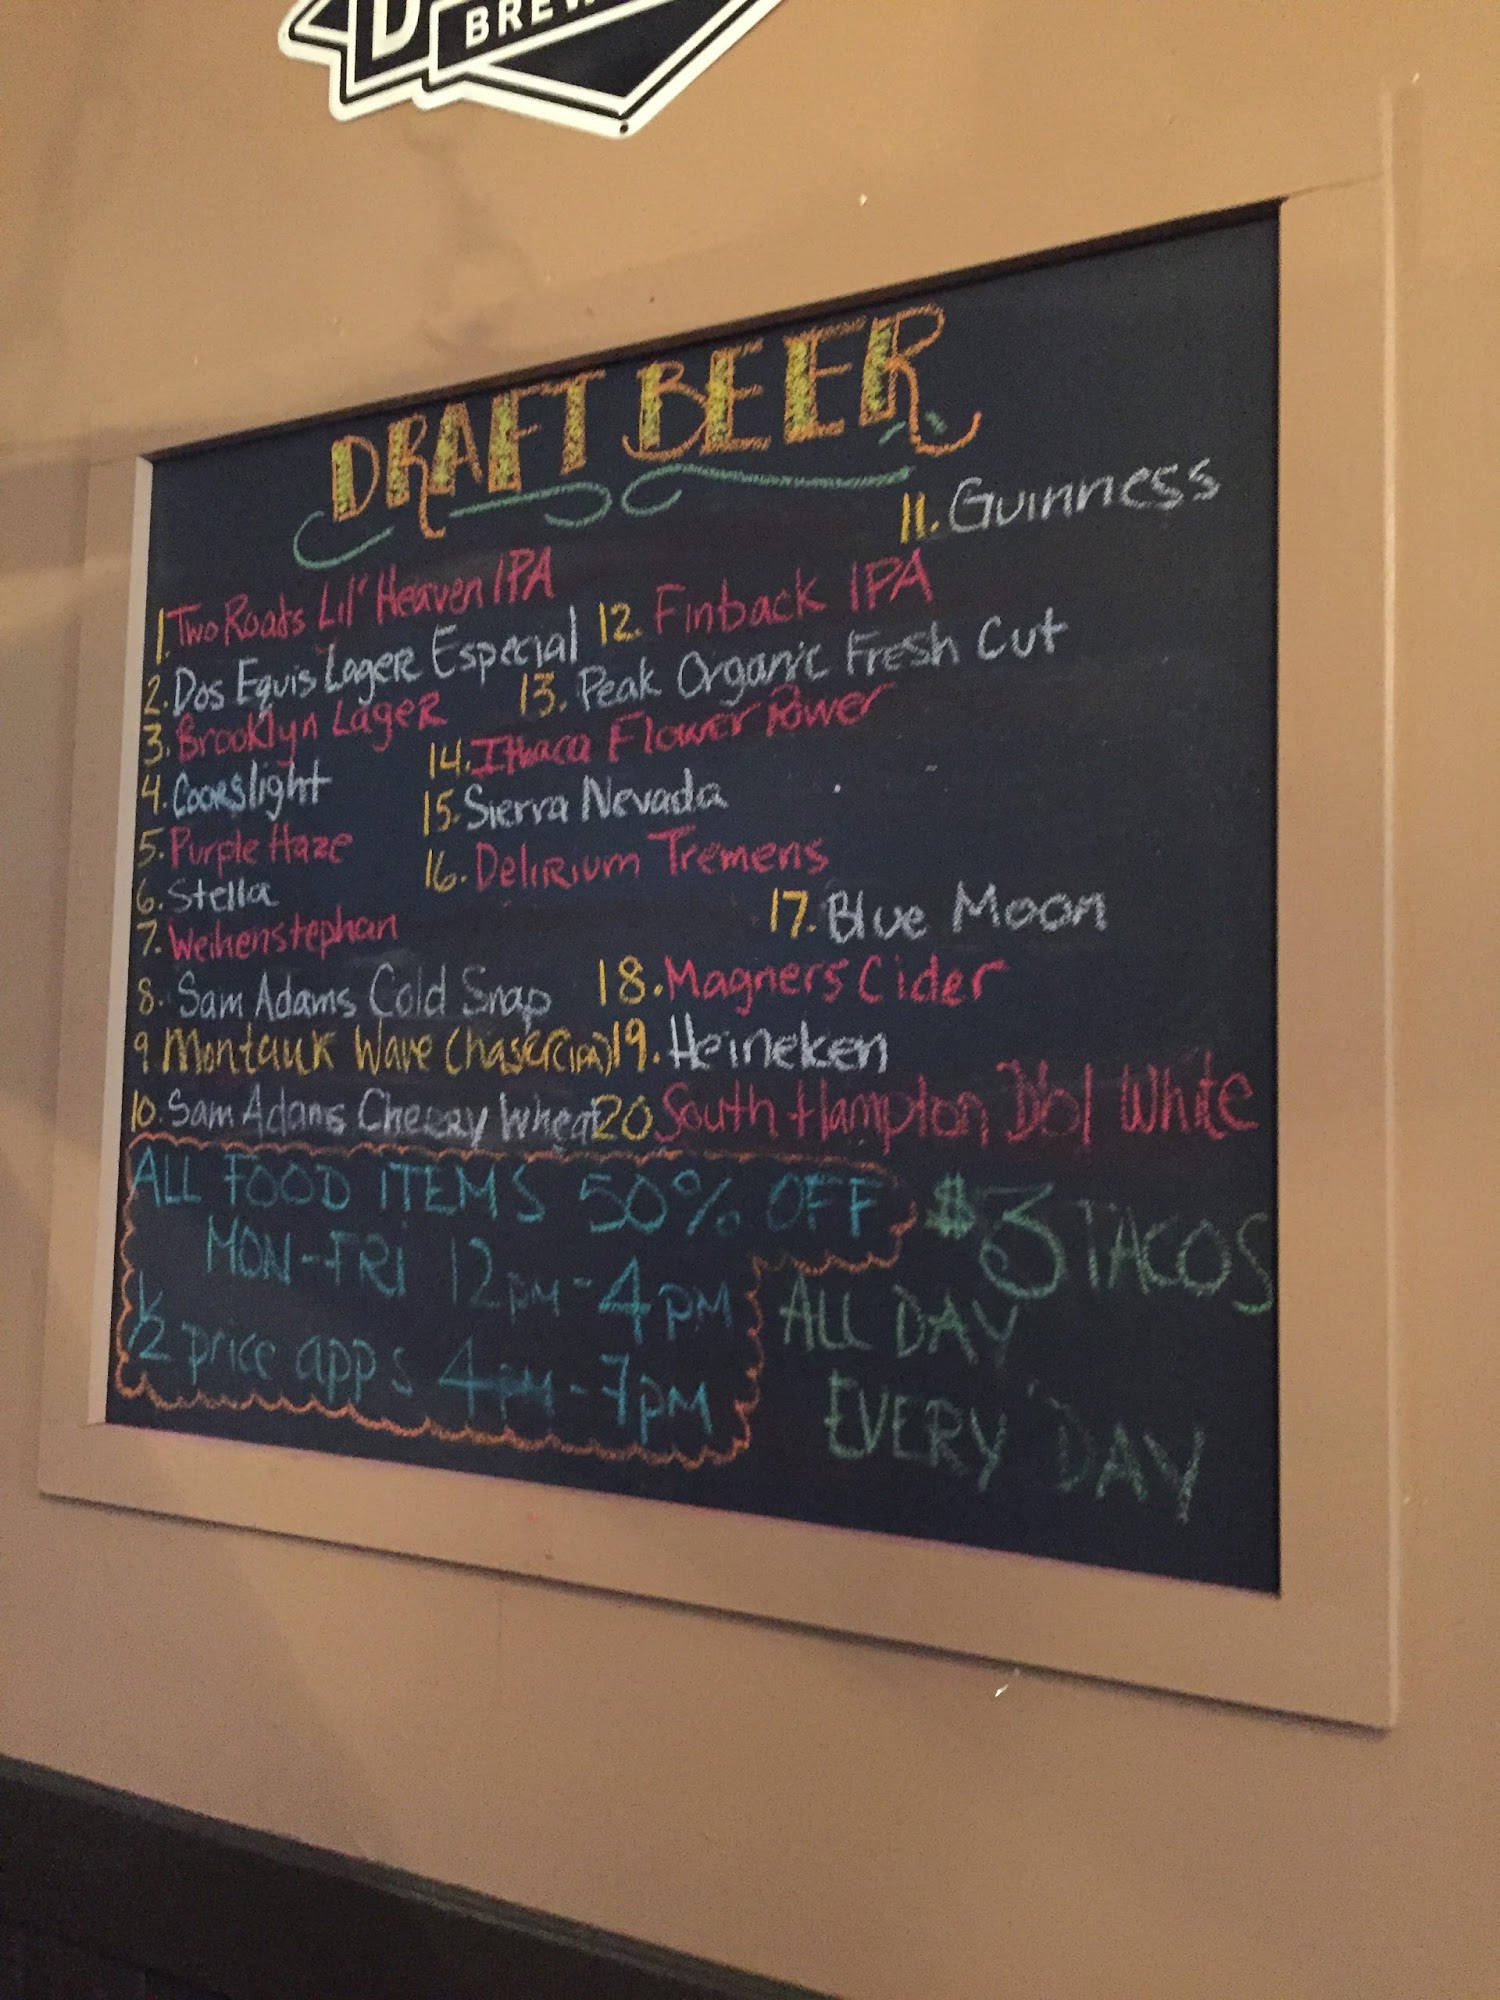 BREW
DRAFT BEER
1. Two Roads Lil' Heaven IPA
2. Dos Equis Lager Especial
3. Brooklyn Lager
4. Coorslight
5. Purple Haze
6. Stella
7. Weihenstephan
8. Sam Adams Cold Snap
9 Montauk Wave Chaser (IPA)
10. Sam Adams Cherry Wheat
11. Guinness
12. Finback IPA
13. Peak Organic Fresh Cut
14. Ithaca Flower Power
15. Sierra Nevada
16. Delirium Tremens
17. Blue Moon
18. Magners Cider
19. Heineken
20 South Hampton Dbl White
ALL FOOD ITEMS 50% OFF
MON-FRI 12PM-4PM
1/2 price apps 4PM-7PM
$3 TACOS
ALL DAY
EVERY DAY